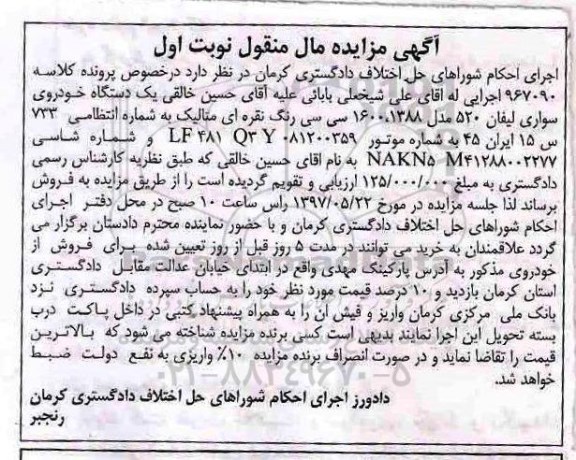 آگهی مزایده مال منقول نوبت اول
اجرای احکام شوراهای حل اختلاف دادگستری کرمان در نظر دارد درخصوص پرونده کلاسه
۹۶۷۰۹۰ اجرایی له اقای علی شیخعلی بابائی علیه آقای حسین خالقی یک دستگاه خودروی
سواری لیفان ۵۲۰ مدل ۱۳۸۸، ۱۶۰۰ سی سی رنگ نقره ای متالیک به شماره انتظامی ۷۳۳
س ۱۵ ایران ۴۵ به شماره موتور LF ۴۸۱ Q۳ Y ۰۸۱۲۰۰۳۵۹ و شماره شاسی
NAKN۵ M۴۱۲۸۸۰۰۲۲۷۷ به نام اقای حسین خالقی که طبق نظریه کارشناس رسمی
دادگستری به مبلغ ۱۲۵/۰۰۰/۰۰۰ ارزیابی و تقویم گردیده است را از طریق مزایده به فروش
برساند لذا جلسه مزایده در مورخ ۱۳۹۷/۰۵/۲۲ راس ساعت ۱۰ صبح در محل دفتر اجرای
احکام شوراهای حل اختلاف دادگستری کرمان و با حضور نماینده محترم دادستان برگزار می
گردد علاقمندان به خرید می توانند در مدت ۵ روز قبل از روز تعیین شده برای فروش از
خودروی مذکور به آدرس پارکینگ مهدی واقع در ابتدای خیابان عدالت مقابل دادگستری
استان کرمان بازدید و ۱۰ درصد قیمت مورد نظر خود را به حساب سپرده دادگستری نزد
بانک ملی مرکزی کرمان واریز و فیش ان را به همراه پیشنهاد کتبی در داخل پاکت درب
بسته تحویل این اجرا نمایند بدیهی است کسی برنده مزایده شناخته می شود که بالاترین
قیمت را تقاضا نماید و در صورت انصراف برنده مزایده ۱۰٪ واریزی به نفع دولت ضبط
خواهد شد.
۰۲۱-۸۸۳۴۹۶۷۰-۵
دادورز اجرای احکام شوراهای حل اختلاف دادگستری کرمان
رنجبر